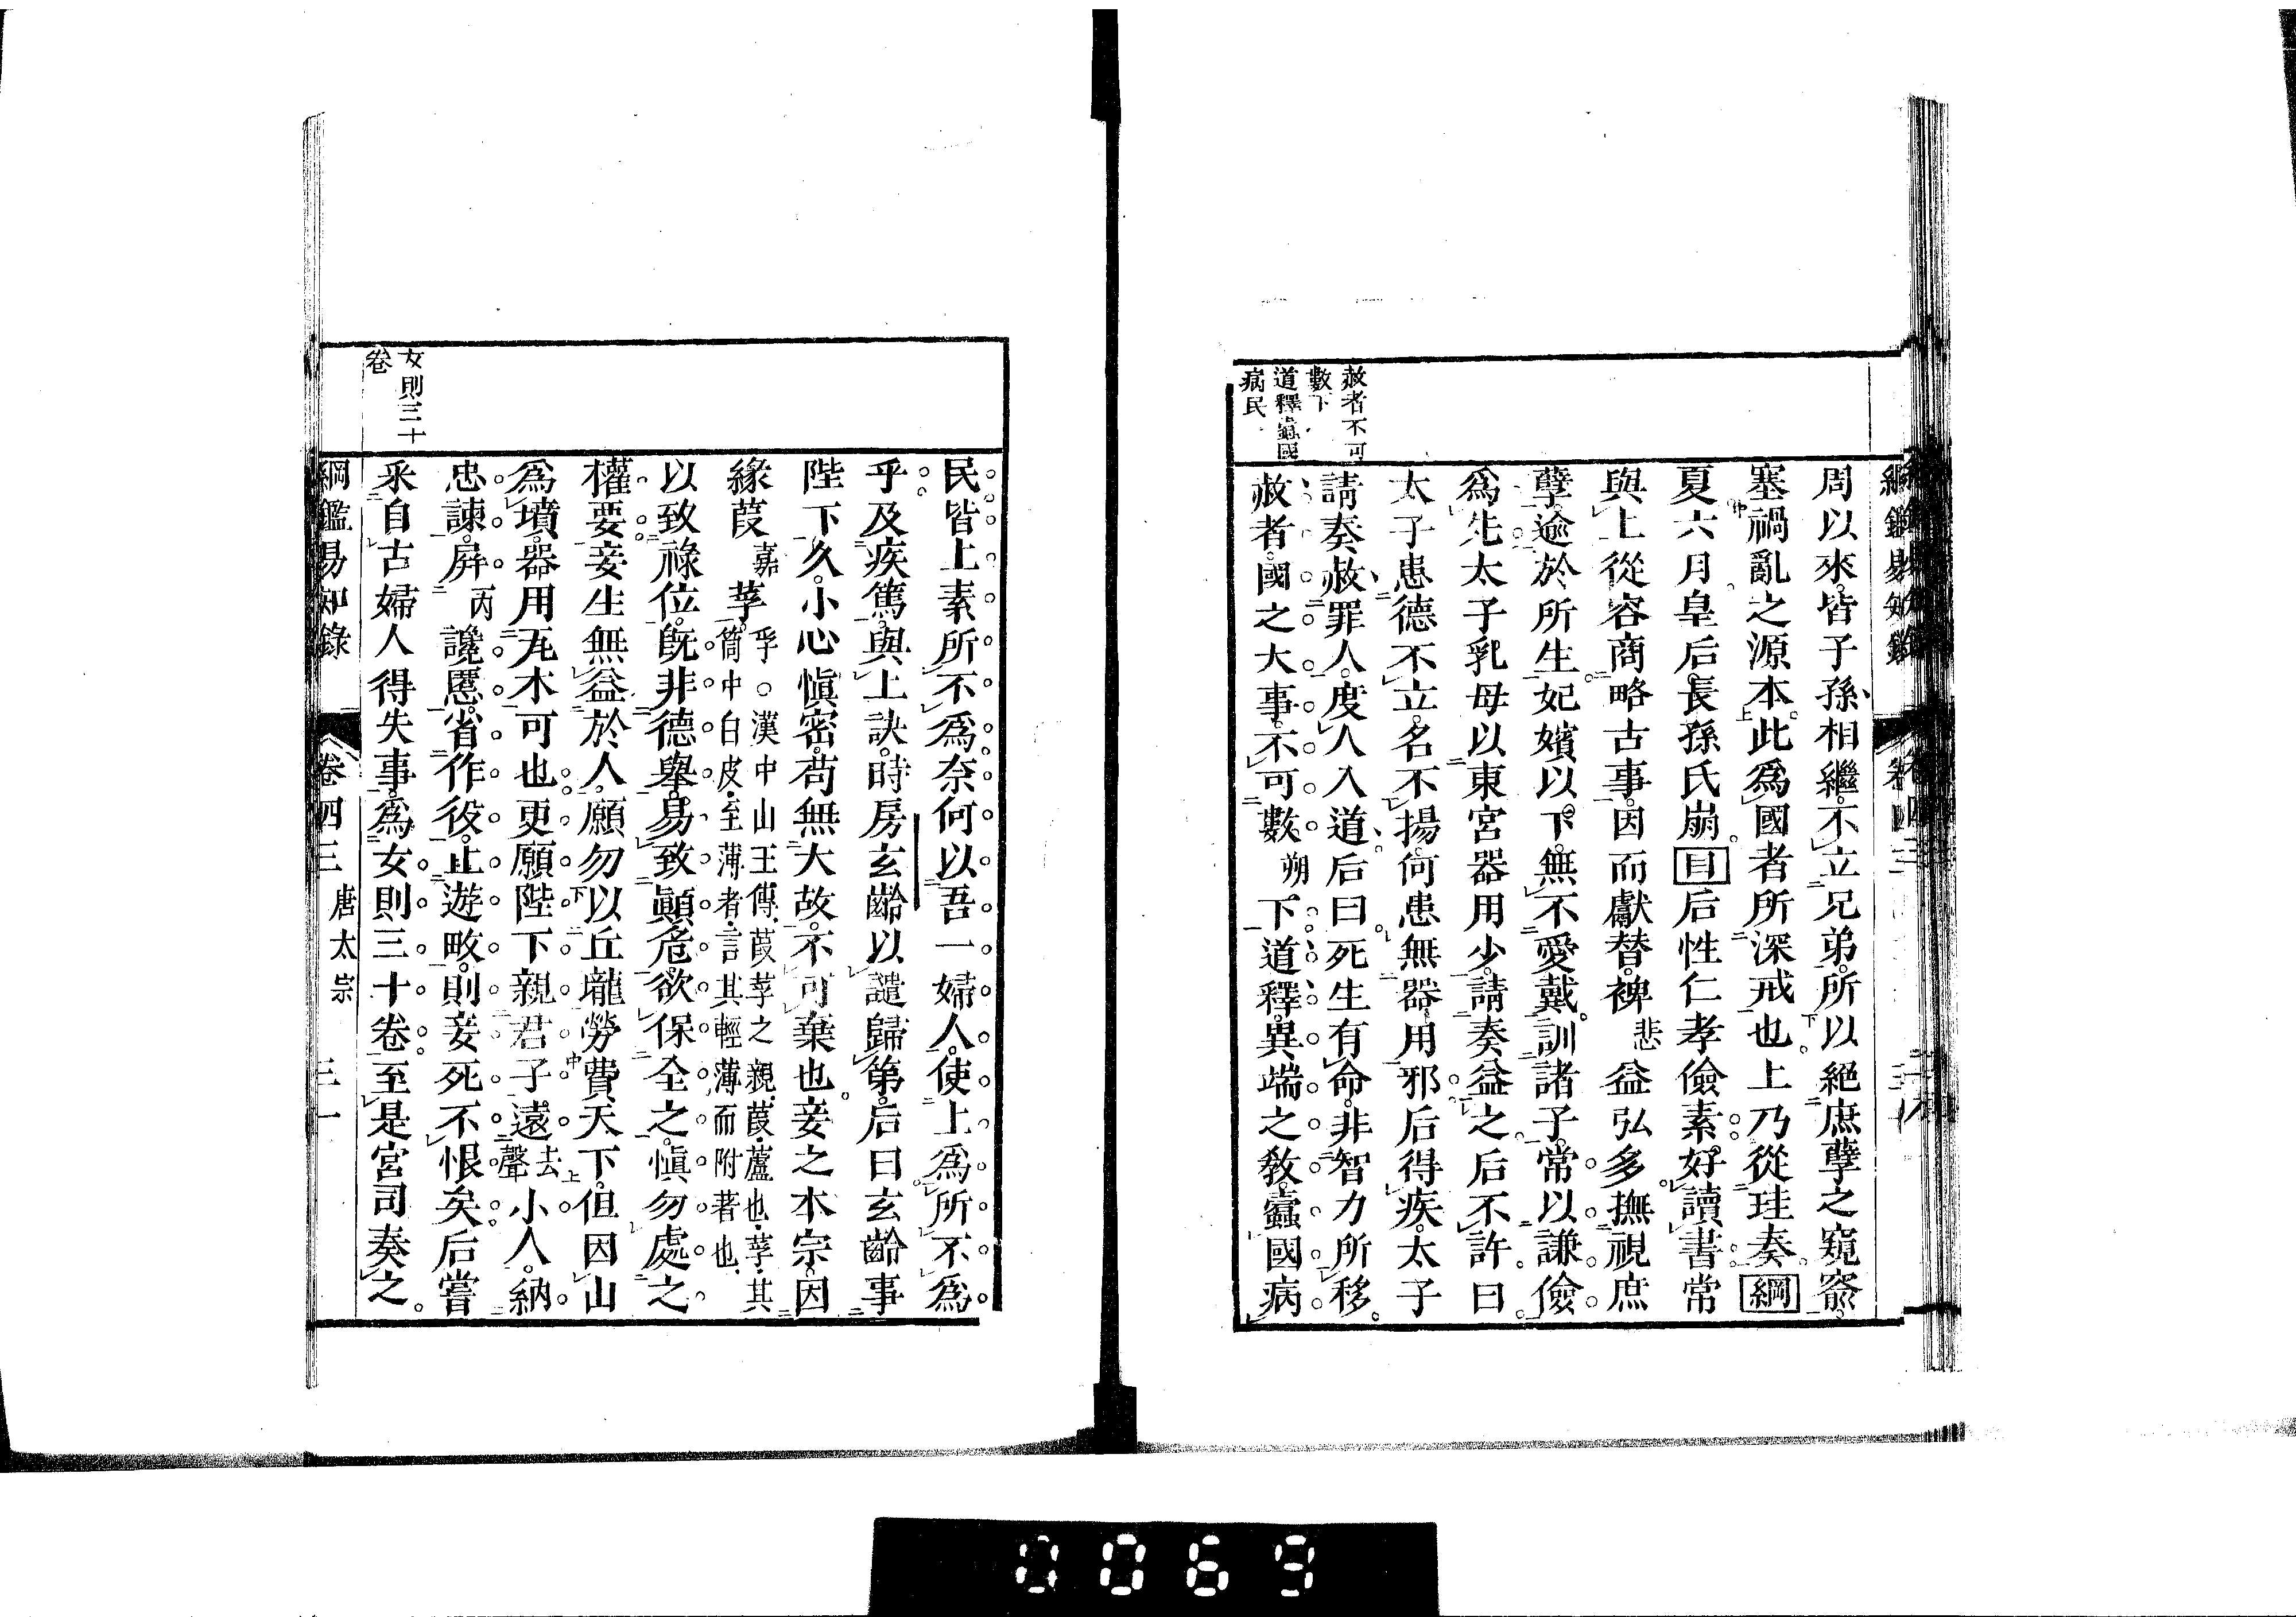 綱鑑易知錄 卷四三
周以來皆子孫相繼不立兄弟所以絕庶孽之窺窬
塞禍亂之源本此爲國者所深戒也上乃從珪奏綱
夏六月皇后長孫氏崩目后性仁孝儉素好讀書常
與上從容商略古事因而獻替裨悲益弘多撫視庶
孽逾於所生妃嬪以下無不愛戴訓諸子常以謙儉
爲先太子乳母以東宮器用少請奏益之后不許曰
太子患德不立名不揚何患無器用邪后得疾太子
請奏赦罪人度人入道后曰死生有命非智力所移
赦者國之大事不可數朔下道釋異端之敎蠹國病
赦者不可
數下
道釋蠹國
病民
民皆上素所不爲奈何以吾一婦人使上爲所不爲
乎及疾篤與上訣時房玄齡以譴歸第后曰玄齡事
陛下久小心愼密苟無大故不可棄也妾之本宗因
緣葭嘉莩孚○漢中山王傳葭莩之親葭蘆也莩其
筩中白皮至薄者言其輕薄而附著也
以致祿位旣非德舉易致顚危欲保全之愼勿處之
權要妾生無益於人願勿以丘壠勞費天下但因山
爲墳器用瓦木可也更願陛下親君子遠去聲小人納
忠諫屛丙讒慝省作役止遊畋則妾死不恨矣后嘗
釆自古婦人得失事爲女則三十卷至是宮司奏之
女則三十
卷
綱鑑易知錄 卷四三 唐太宗 三一
0069